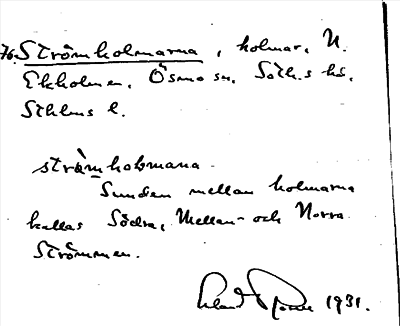 76. Strömholmarna, holmar, N.
Ekholmen, Ösmo sn, Soth.s hd,
Sthlms l.
strö̀mhobmana
Sunden mellan holmarna
kallas Södra, Mellan- och Norra
Strömmen.
1931.